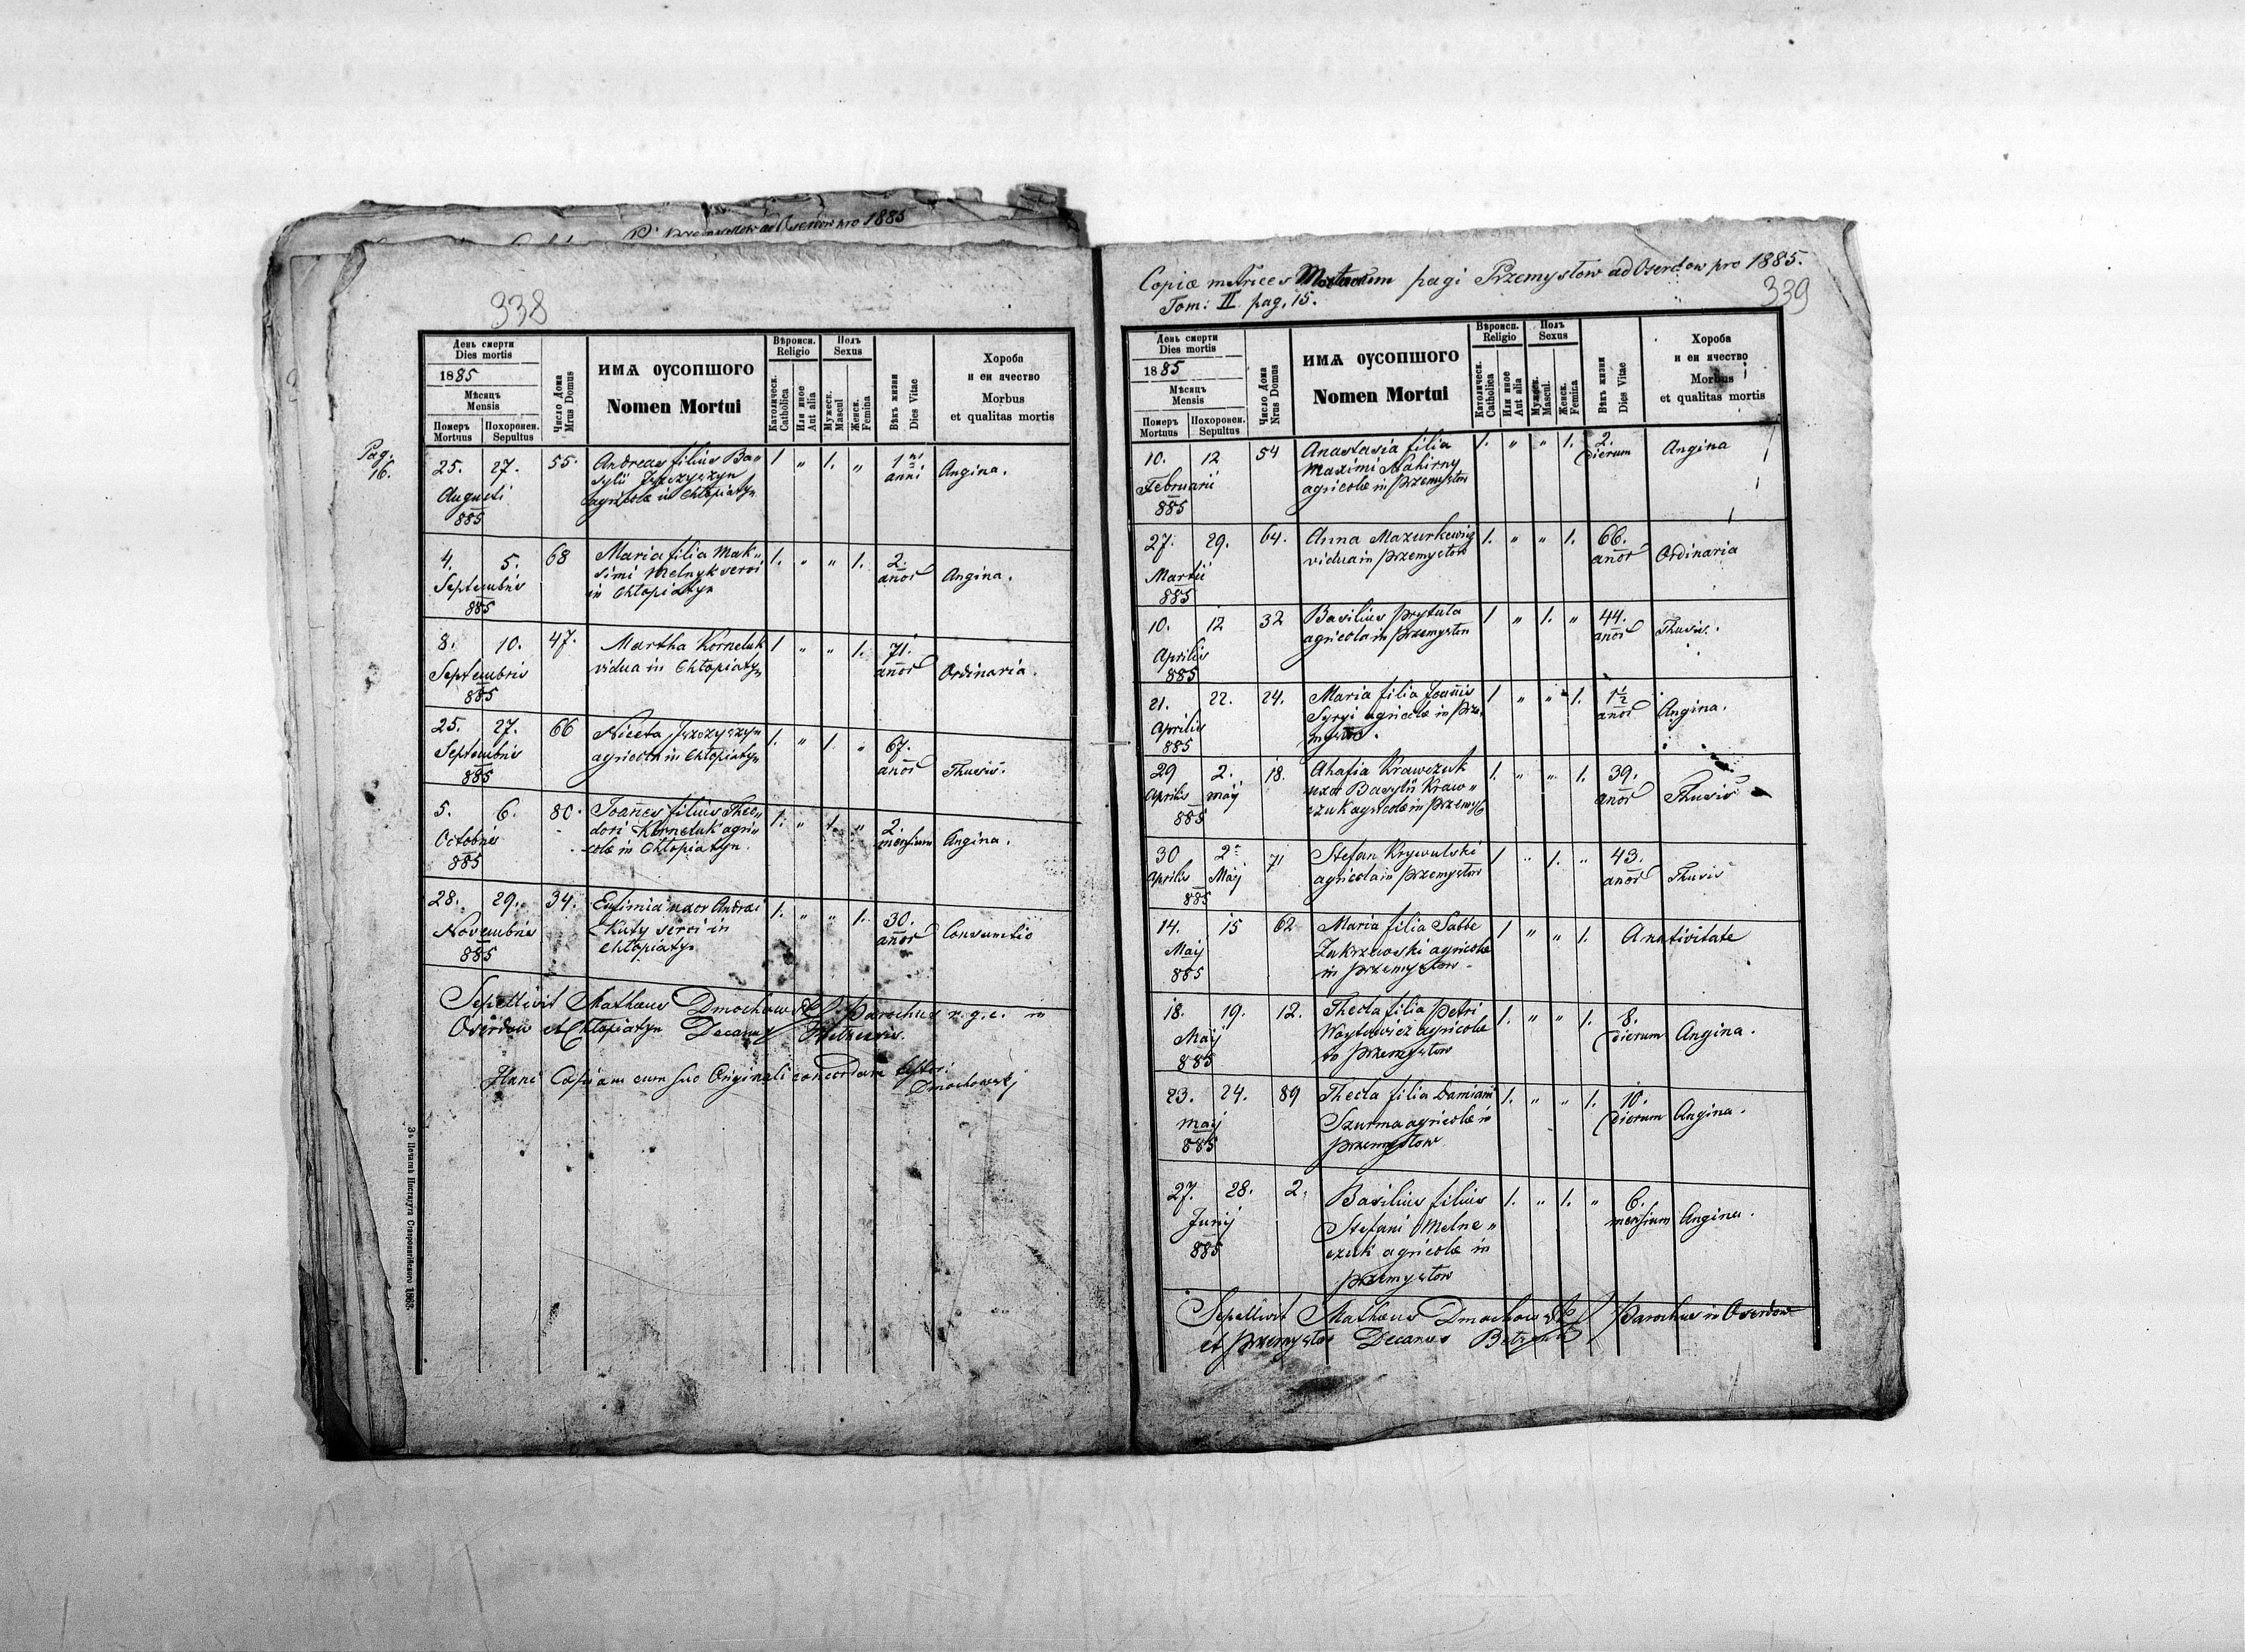 338
День смерти
Dies mortis
1885
Мѣсяцъ
Mensis
Померъ Mortuus
Похоронен. Sepultus
Число Дома
Mrus Domus
имѧ оусопшого
Nomen Mortui
Вѣроисп.
Religio
Католическ. Catholica
Или иное Aut alia
Полъ
Sexus
Мужеск. Mascul
Женск. Femina
Вѣкъ жизни
Dies Vitae
Хороба
и еи ячество
Morbus
et qualitas mortis
Pag.
16.
25. 27. 55. Andreas filius Ba= 1 " 1. " 1 ni Angina.
Augusti sylii anni
885 agricolæ in Chłopiatyn
4. 5. 68 Maria filia Mak= 1. " " 1. 2. Angina.
Septembris simi Melnyk servi anor
885 in Chłopiatyn
8. 10. 47. Martha Korneluk 1 " " 1. 71. Ordinaria.
Septembris vidua in Chłopiatyn anor
885
25. 27. 66 Niceta 1. " 1. " 67. Thusis.
Septembris agricola in Chłopiatyn anor
885
5. 6. 80. Joañes filius Theo= 1. " 1. " 2. Angina.
Octobris dori Korneluk agri= mensium
885 colæ in Chłopiatyn.
28. 29. 34. Eufimia uxor Andrei 1. " " 1. 30. Consumtio
Novembris Kuty servi in anor
885 Chłopiatyn
Sepellivit Mathæus Dmochowski Parochus r. g. c. in
Oserdow et Chłopiatyn Decanus
Hanc Copiam cum suo Originali concordare testor.
Dmochowski
Зъ Печатнѣ Института Ставропигійского 1883.
Copiæ metrices Mortuorum pagi Przemysłow ad Oserdow pro 1885.
Tom: II pag. 15.
339
День смерти
Dies mortis
1885
Мѣсяцъ
Mensis
Померъ Mortuus
Похоронен. Sepultus
Число Дома
Nrus Domus
имѧ оусопшого
Nomen Mortui
Вѣроисп.
Religio
Католическ. Catholica
Или иное Aut alia
Полъ
Sexus
Мужеск. Mascul.
Женск. Femina
Вѣкъ жизни
Dies Vitae
Хороба
и еи ячество
Morbus
et qualitas mortis
10. 12 54 Anastasia filia 1. " " 1. 2. Angina
Februarii Maximi Nahirny dierum
885 agricolæ in Przemysłow
27. 29. 64. Anna Mazurkewicz 1. " " 1. 66. Ordinaria
Martii vidua in Przemysłow anor
885
10. 12 32 Basilius Prytula 1 " 1. " 44. Thusis.
Aprilis agricola in Przemysłow anor
885
21. 22. 24. Maria filia Joañis 1 " " 1. 1½ Angina.
Aprilis agricolæ in Prze= anor
885 mysłow.
29 2. 18. Ahafia Krawczuk 1. " " 1. 39. Thusis
Aprilis Maij uxor Basylii Kraw= anor
885 czuk agricolæ in Przemysł
30 2 71 Stefan Krywulski 1 " 1. " 43. Thusis
Aprilis Maij agricola in Przemysłow anor
885
14. 15 62 Maria filia Sabbe 1 " " 1. A nativitate
Maij Zukrzewski agricolæ
885 in Przemysłow.
18. 19. 12. Thecla filia Petri 1. " " 1. 8. Angina.
Maij Woytowicz agricolæ dierum
885 in Przemysłow
23. 24. 89 Thecla filia Damiani 1. " " 1. 10. Angina.
Maij Szurma agricolæ in dierum
885 Przemysłow
27. 28. 2. Basilius filius 1. " 1. " 6. Angina.
Junij Stefani Melne= mensium
885 czuk agricolæ in
Przemysłow
Sepellivit Mathæus Dmochowski Parochus in Oserdow
et Przemysłow Decanus